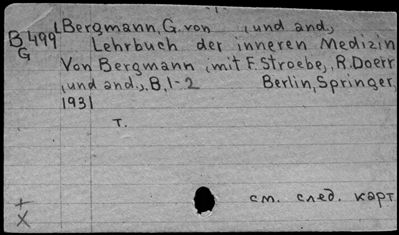 B 499
G
Bergmann, G. von (und and.)
Lehrbuch der inneren Medizin
Von Bergmann (mit F. Stroebe), R. Doerr
(und and.). B. 1-2 Berlin, Springer,
1931
T.
см. след. карт
+
X